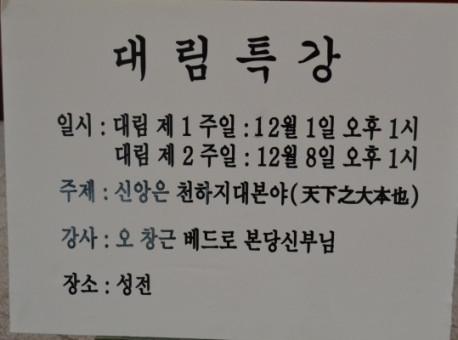 대림특강
일시 : 대림 제 1 주일 : 12월 1일 오후 1시
대림 제 2 주일 : 12월 8일 오후 1시
주제 : 신앙은 천하지대본야(天下之大本也)
강사 : 오 창근 베드로 본당신부님
장소 : 성전